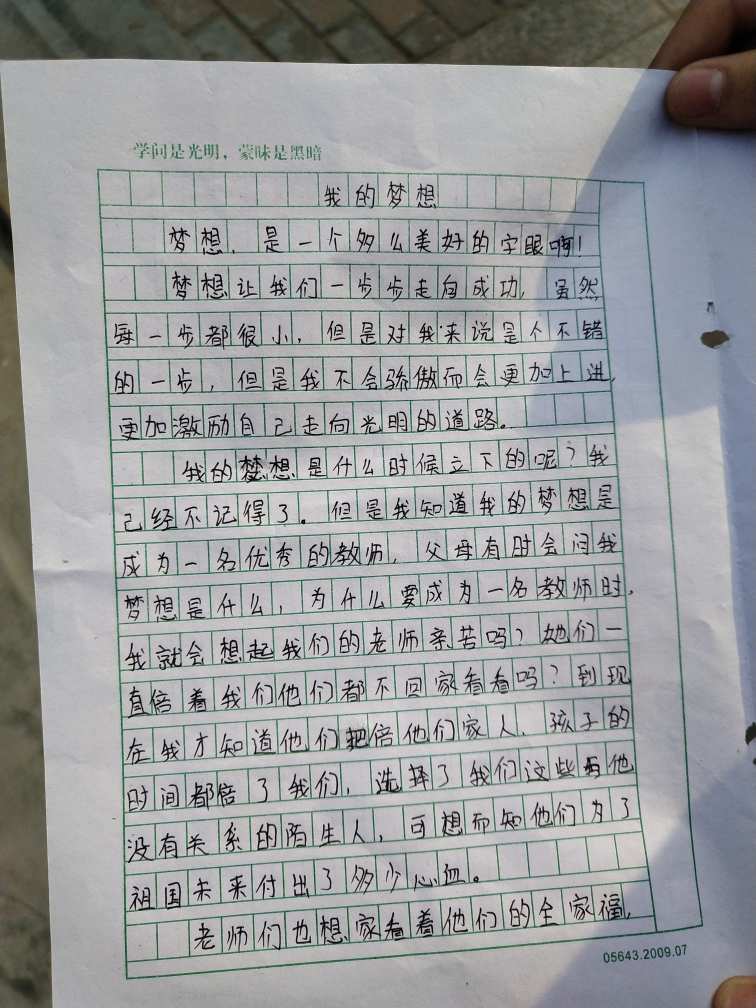 学问是光明，蒙昧是黑暗
我的梦想
梦想，是一个多么美好的字眼啊！
梦想让我们一步步走向成功，虽然
每一步都很小，但是对我来说是个不错
的一步，但是我不会骄傲而会更加上进，
更加激励自己走向光明的道路。
我的梦想是什么时候立下的呢？我
己经不记得了。但是我知道我的梦想是
成为一名优秀的教师，父母有时会问我
梦想是什么，为什么要成为一名教师时，
我就会想起我们的老师亲苦吗？她们一
直倍着我们他们都不回家看看吗？到现
在我才知道他们把倍他们家人，孩子的
时间都倍了我们，选择了我们这些与他
没有关系的陌生人，可想而知他们为了
祖国未来付出了多少心血。
老师们也想家看着他们的全家福，
05643.2009.07